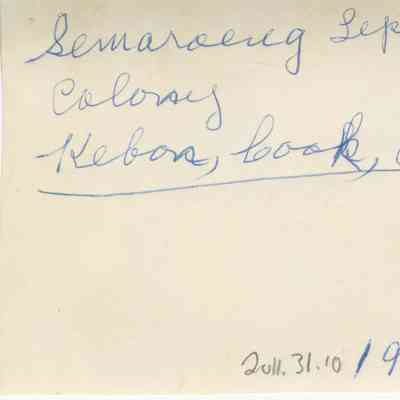 Semaroeng Lep
Colony
Kebon, cook,
2011.31.10 19